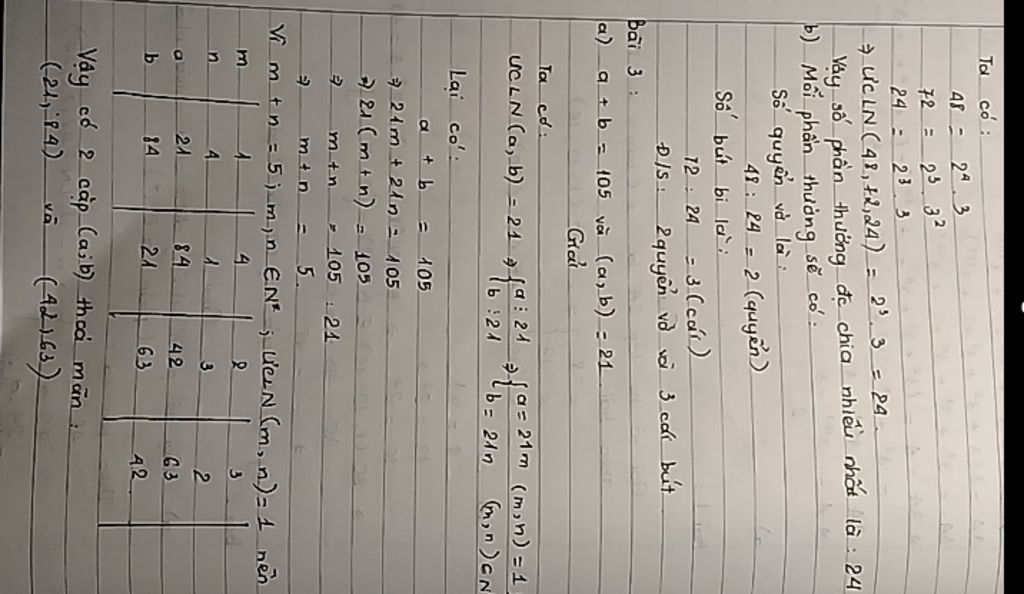 Ta có:
48 = 2⁴ . 3
72 = 2³ . 3²
24 = 2³ . 3
⇒ ƯCLN (48, 72, 24) = 2³ . 3 = 24.
Vậy số phần thưởng đc chia nhiều nhất là : 24
b) Mỗi phần thưởng sẽ có :
Số quyển vở là :
48 : 24 = 2 (quyển)
Số bút bi là :
72 : 24 = 3 (cái)
Đ/S : 2 quyển vở và 3 cái bút
Bài 3 :
a) a + b = 105 và (a, b) = 21
Giải
Ta có :
ƯCLN (a, b) = 21 ⇒ { a ⋮ 21 ⇒ { a = 21m (m, n) = 1
{ b ⋮ 21 { b = 21n (m, n) ∈ N
Lại có :
a + b = 105
⇒ 21m + 21n = 105
⇒ 21 (m + n) = 105
⇒ m + n = 105 : 21
⇒ m + n = 5.
Vì m + n = 5 ; m, n ∈ N* ; ƯCLN (m, n) = 1 nên
m 1 4 2 3
n 4 1 3 2
a 21 84 42 63
b 84 21 63 42
Vậy có 2 cặp (a; b) thoả mãn :
(21; 84) và (42; 63)